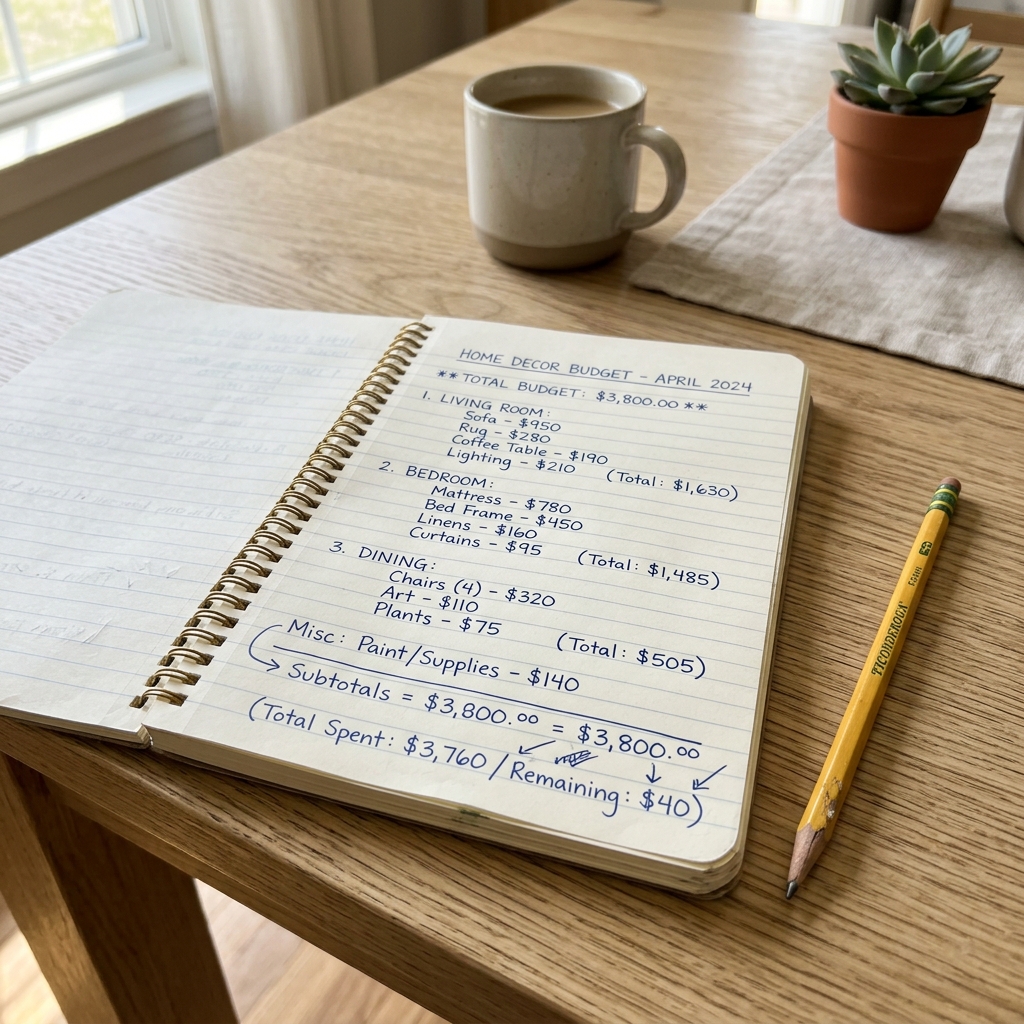 HOME DECOR BUDGET – APRIL 2024
** TOTAL BUDGET: $3,800.00 **
1. LIVING ROOM:
Sofa – $950
Rug – $280
Coffee Table – $190
Lighting – $210 (Total: $1,630)
2. BEDROOM:
Mattress – $780
Bed Frame – $450
Linens – $160
Curtains – $95 (Total: $1,485)
3. DINING:
Chairs (4) – $320
Art – $110
Plants – $75 (Total: $505)
Misc: Paint/Supplies – $140
Subtotals = $3,800.00 = $3,800.00
(Total Spent: $3,760 / Remaining: $40)
TICONDEROGA